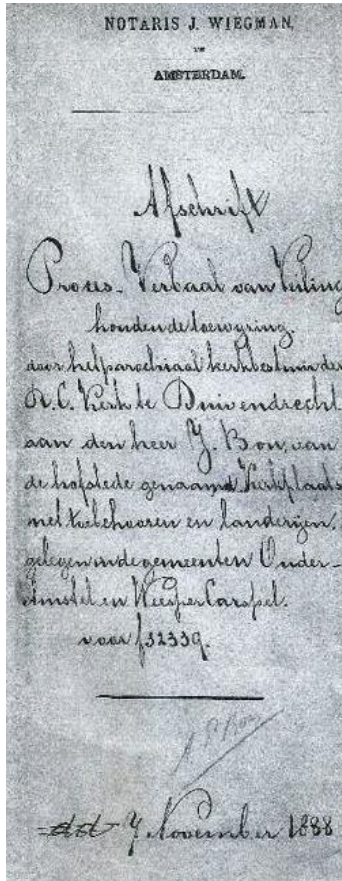 NOTARIS J. WIEGMAN,
TE
AMSTERDAM.
Afschrift
Proces-Verbaal van Veiling
houdende toewijzing.
door het parochiaal kerkbestuur der
R.C. Kerk te Duivendrecht
aan den heer J. Bon, van
de hofstede genaamd Kerkplaats
met toebehooren en landerijen,
gelegen in de gemeenten Ouder-
Amstel en Weesper Carspel.
voor f 32339.
7 November 1888